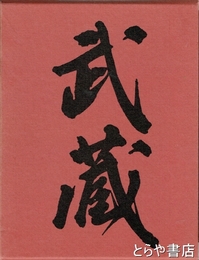 武蔵
とらや書店